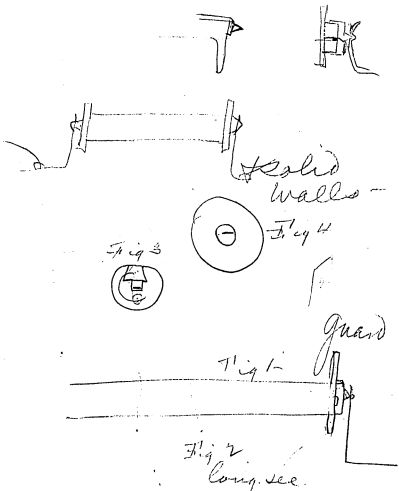 Solid
walls -
Fig 4
Fig 3
guard
Fig 1-
Fig 2
long. sec.